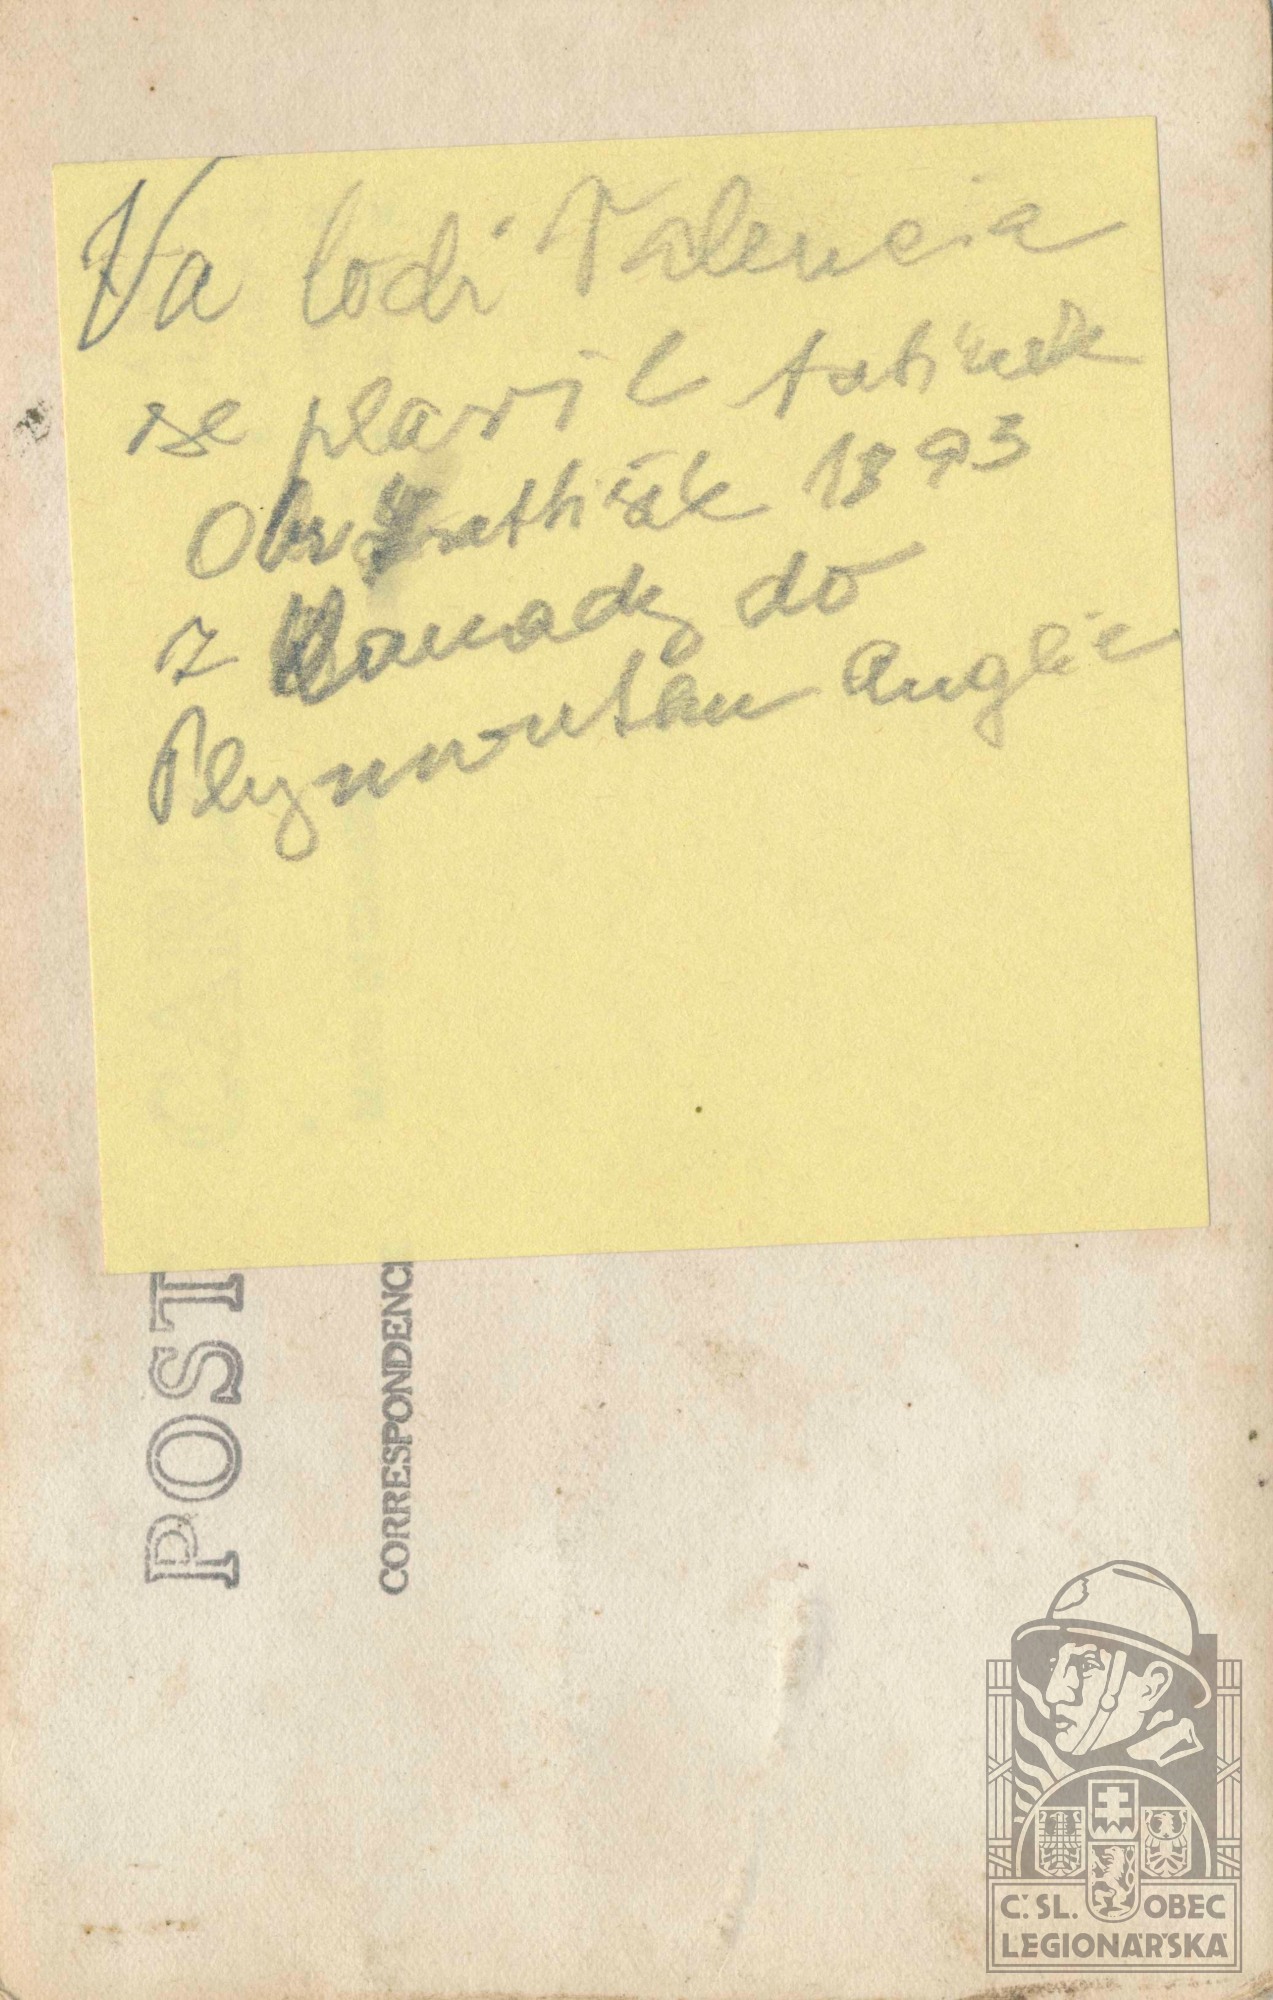 Na lodi Valencia
se plavil tatínek
1893
z Kanady do
Plymouthu Anglie
POST
CORRESPONDENC
Č.SL. OBEC
LEGIONÁŘSKÁ